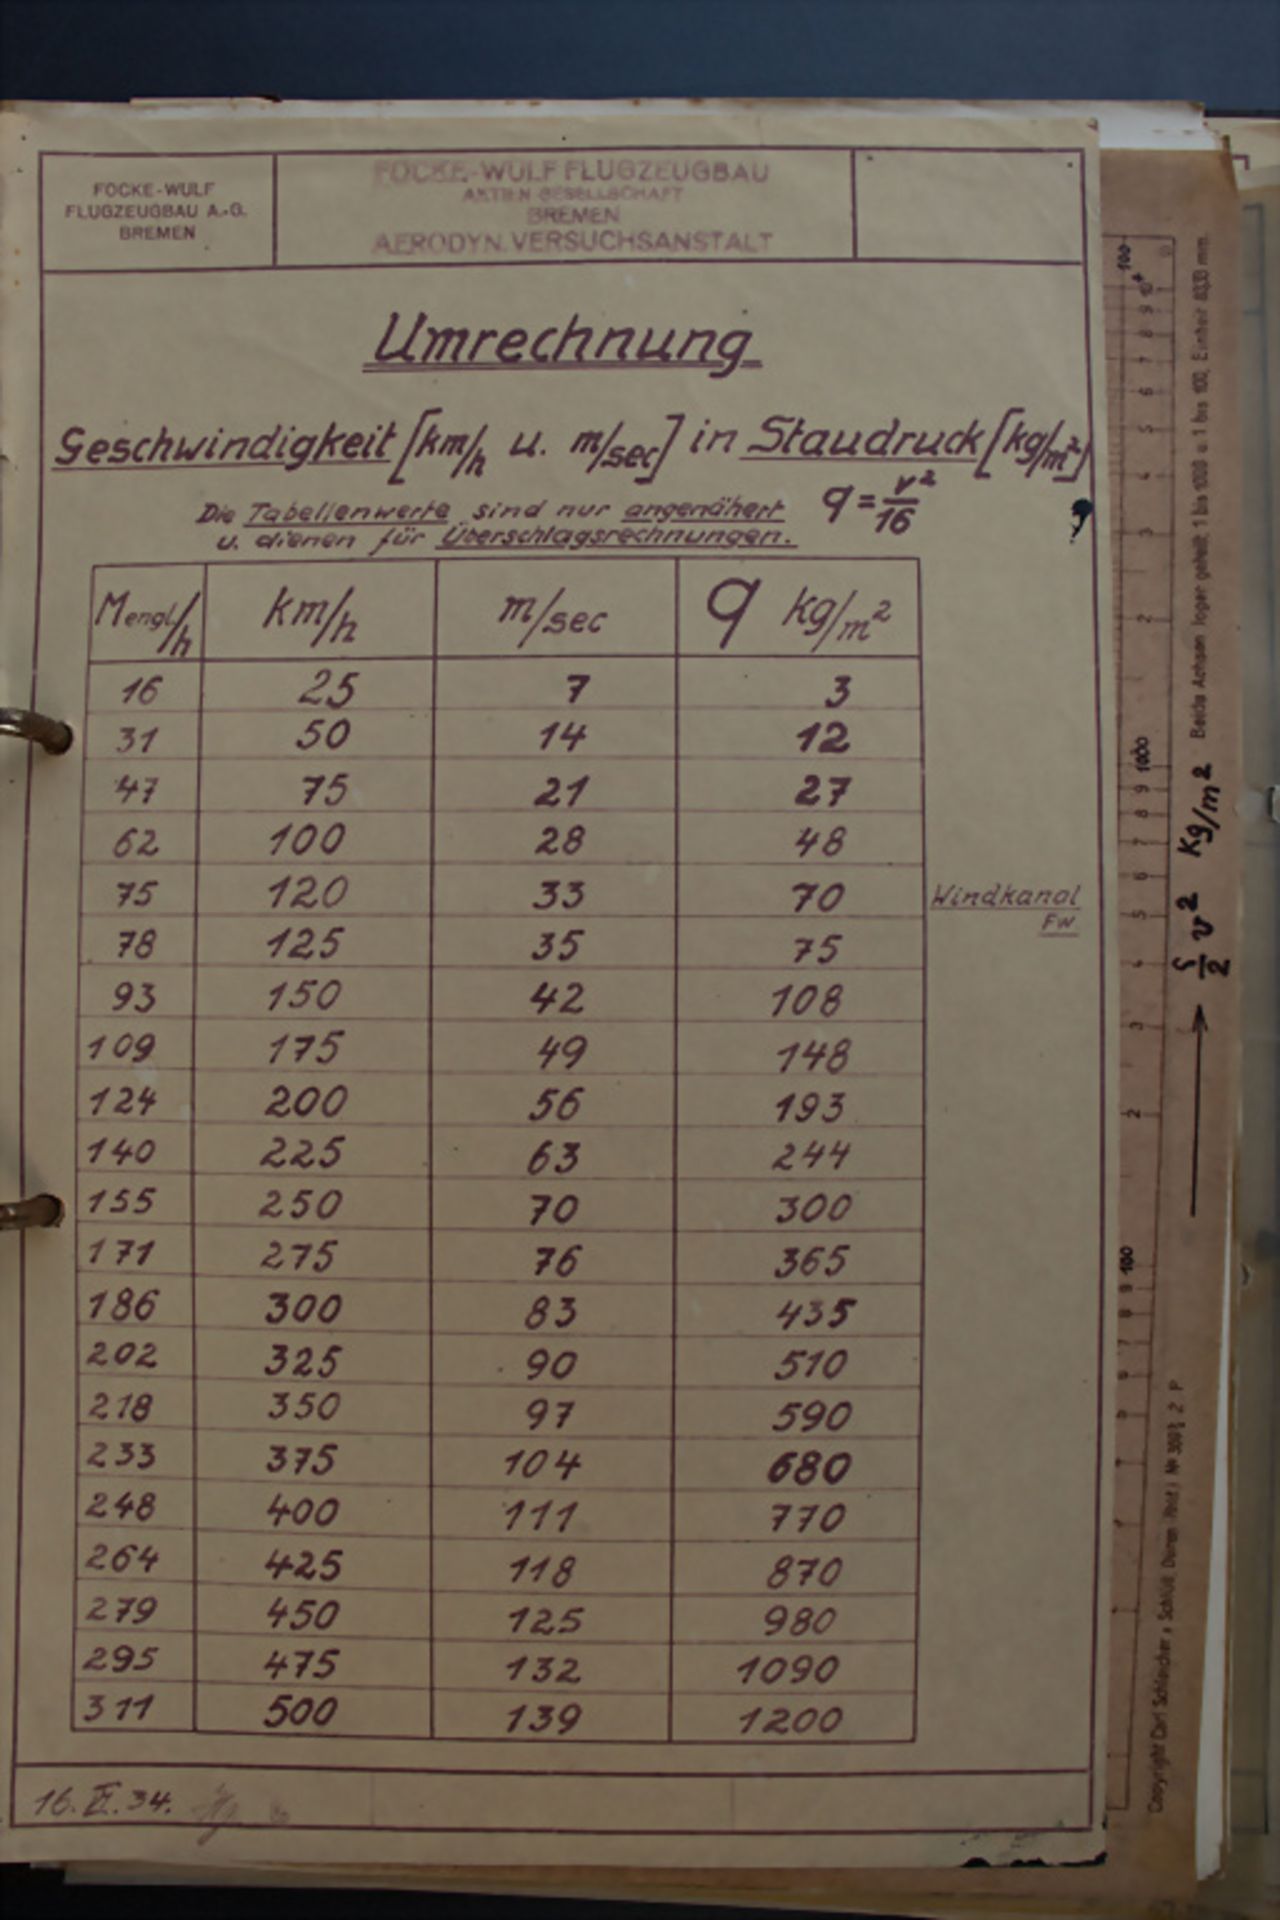 FOCKE-WULF
FLUGZEUGBAU A.-G.
BREMEN
FOCKE-WULF FLUGZEUGBAU
AKTIEN GESELLSCHAFT
BREMEN
AERODYN. VERSUCHSANSTALT
Umrechnung
Geschwindigkeit [km/h u. m/sec] in Staudruck [kg/m²]
Die Tabellenwerte sind nur angenähert q = v²/16
u. dienen für Überschlagsrechnungen.
Mengl/h km/h m/sec q kg/m²
16 25 7 3
31 50 14 12
47 75 21 27
62 100 28 48
75 120 33 70 Windkanal
FW
78 125 35 75
93 150 42 108
109 175 49 148
124 200 56 193
140 225 63 244
155 250 70 300
171 275 76 365
186 300 83 435
202 325 90 510
218 350 97 590
233 375 104 680
248 400 111 770
264 425 118 870
279 450 125 980
295 475 132 1090
311 500 139 1200
16. 34.
100
10⁴
9
8
7
6
5
4
3
2
1000
9
8
7
6
5
4
3
2
100
9
8
7
Beide Achsen logar. geteilt, 1 bis 1000 u. 1 bis 100, Einheit 83,33 mm.
ρ/2 v² Kg/m²
Copyright Carl Schleicher & Schüll, Düren